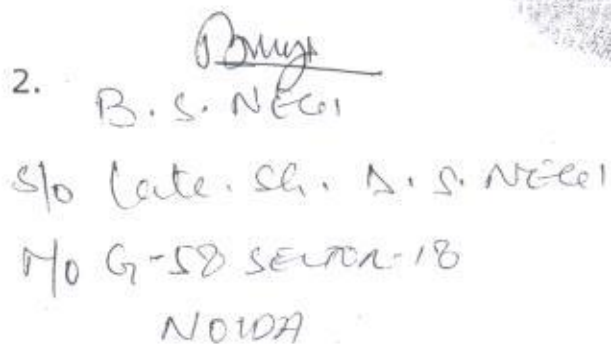 2.
B. S. NEGI
S/o Late. Sh. D. S. NEGI
R/o G-58 SECTOR-18
NOIDA